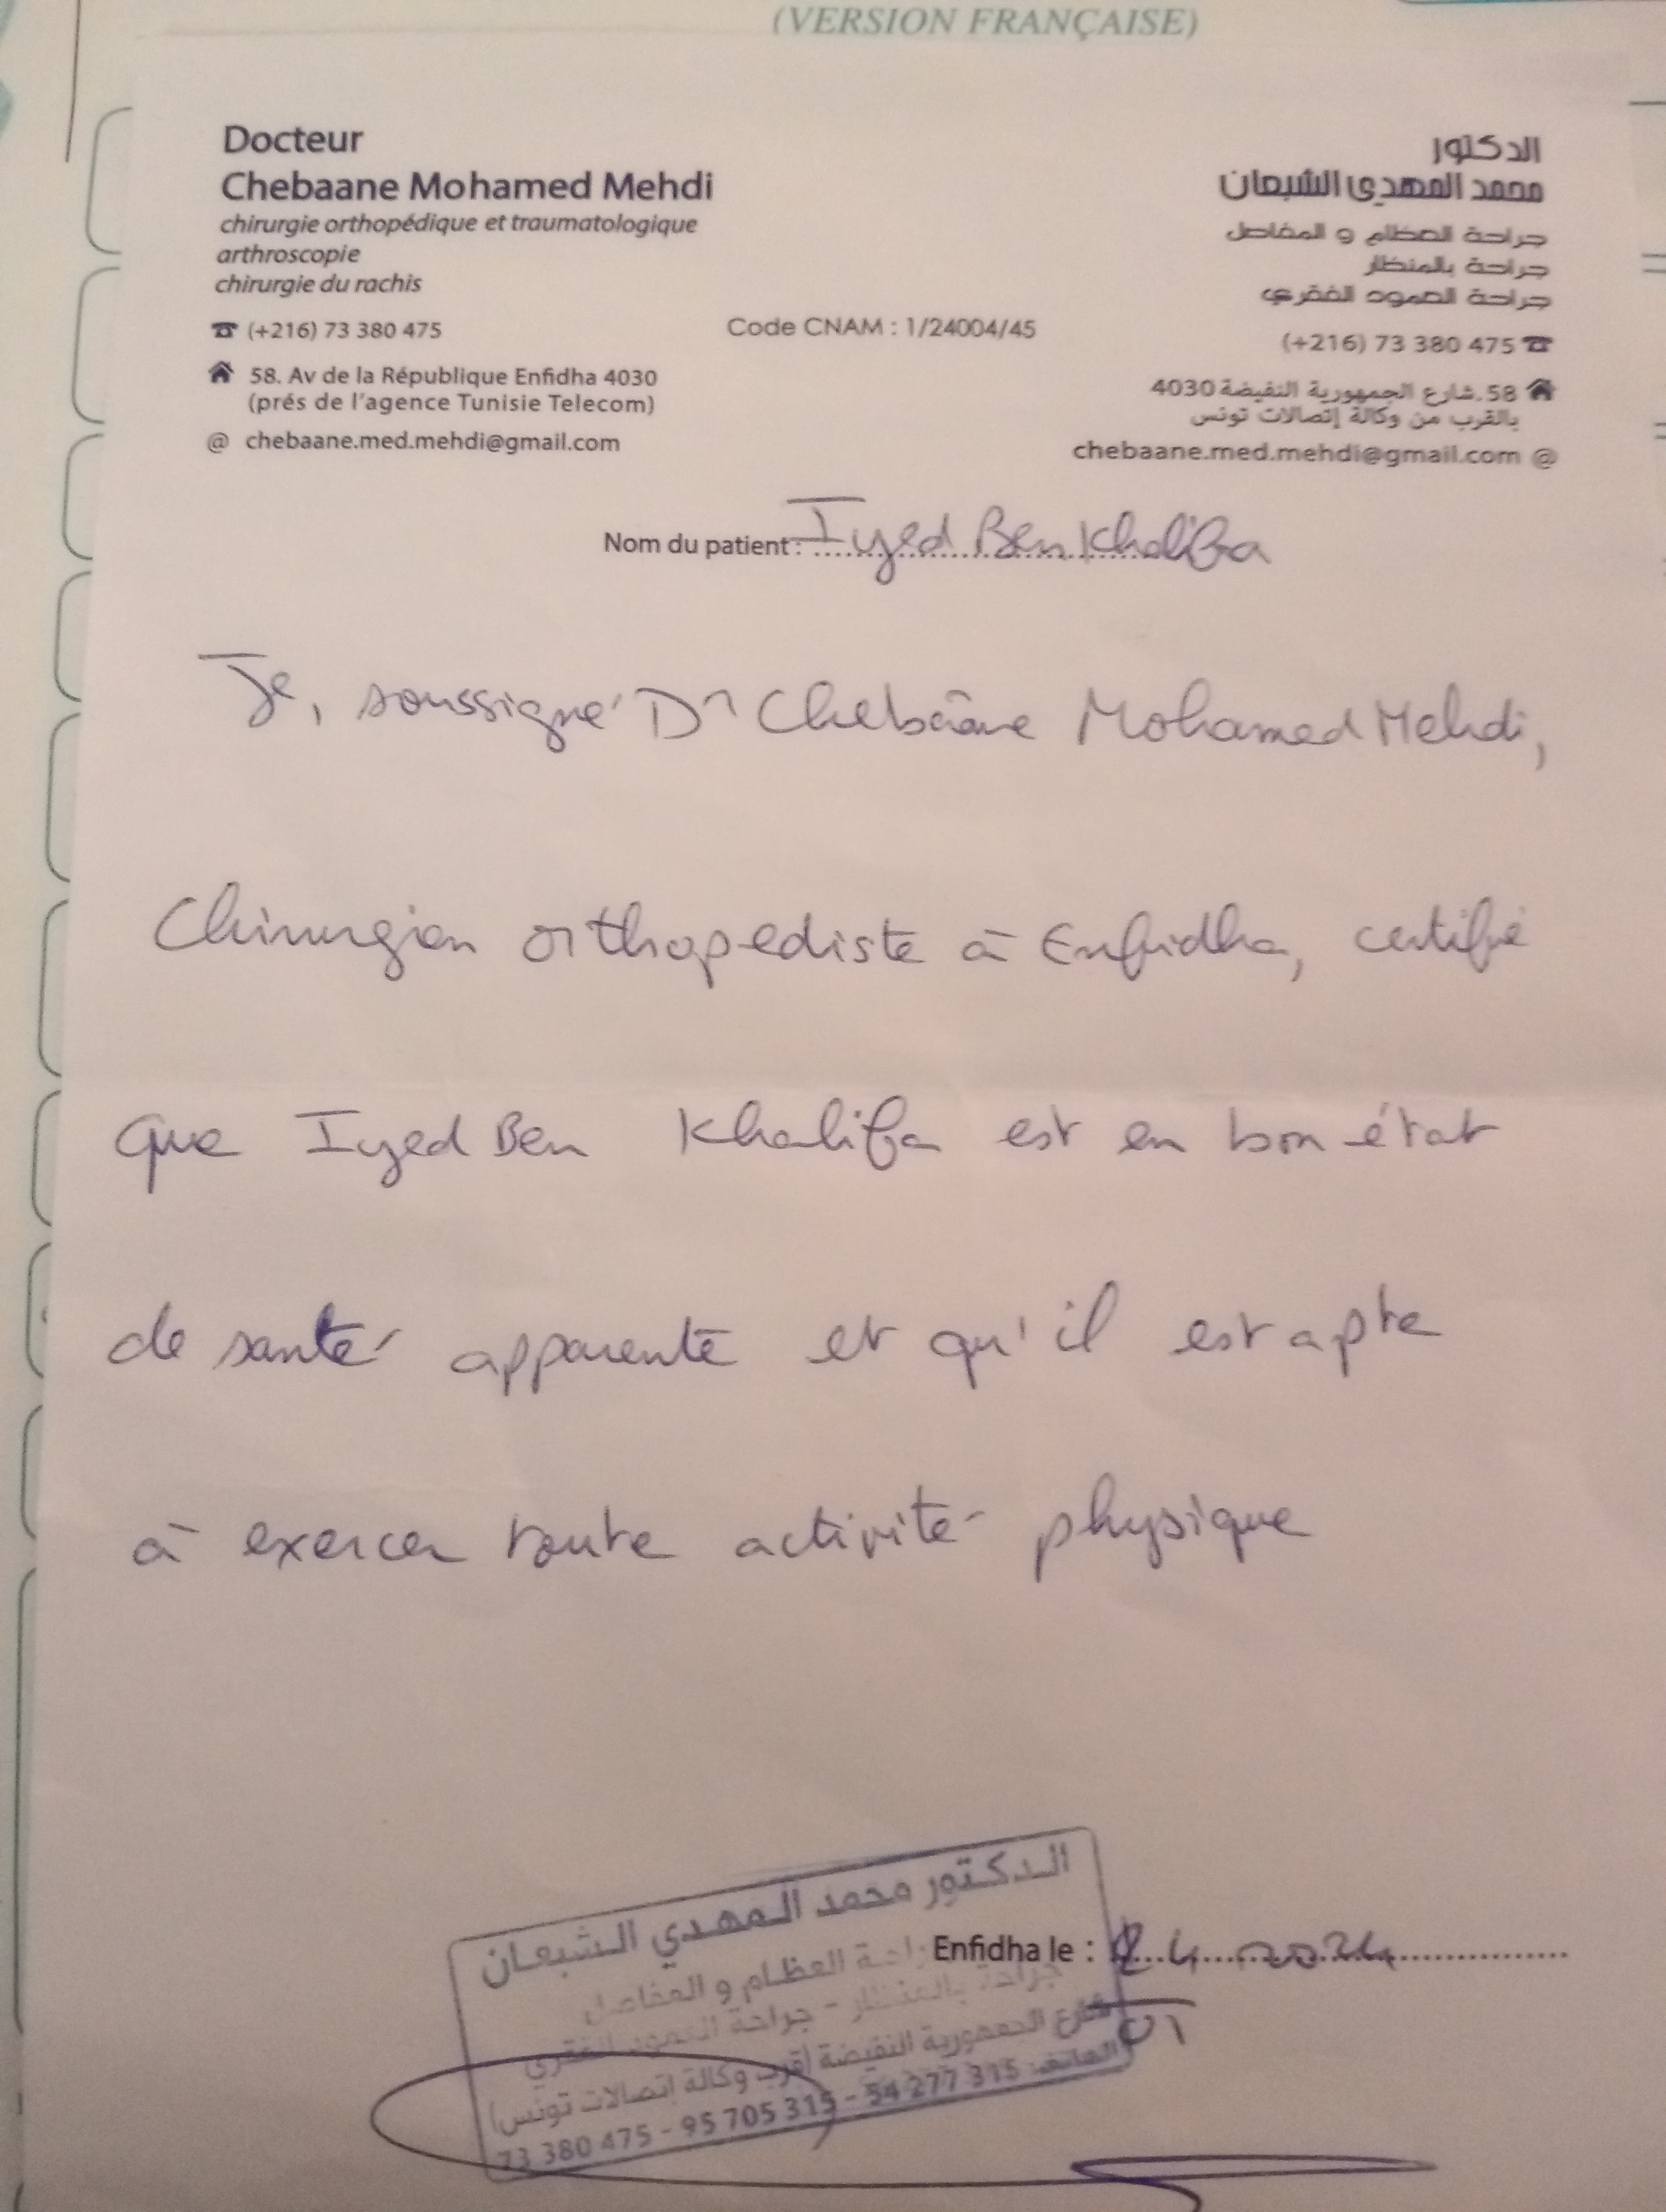 (VERSION FRANÇAISE)
Docteur
Chebaane Mohamed Mehdi
chirurgie orthopédique et traumatologique
arthroscopie
chirurgie du rachis
☎ (+216) 73 380 475
58. Av de la République Enfidha 4030
(prés de l'agence Tunisie Telecom)
@ chebaane.med.mehdi@gmail.com
Code CNAM : 1/24004/45
الدكتور
محمد المهدي الشبعان
جراحة العظام و المفاصل
جراحة بالمنظار
جراحة العمود الفقري
(+216) 73 380 475 ☎
58.شارع الجمهورية النفيضة 4030
بالقرب من وكالة إتصالات تونس
chebaane.med.mehdi@gmail.com @
Nom du patient : Iyed Ben Khalifa
Je, soussigné Dr Chebaâne Mohamed Mehdi,
Chirurgien orthopediste à Enfidha, certifie
que Iyed Ben Khalifa est en bon état
de santé apparente et qu'il est apte
à exercer toute activité physique
Enfidha le : 2024
الدكتور محمد المهدي الشبعان
جراحة العظام و المفاصل
جراحة بالمنظار - جراحة العمود الفقري
شارع الجمهورية النفيضة (قرب وكالة إتصالات تونس)
الهاتف: 315 277 54 - 315 705 95 - 475 380 73